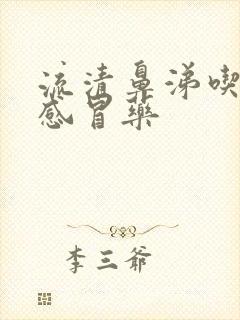 流清鼻涕喫
感冒藥
李三爺